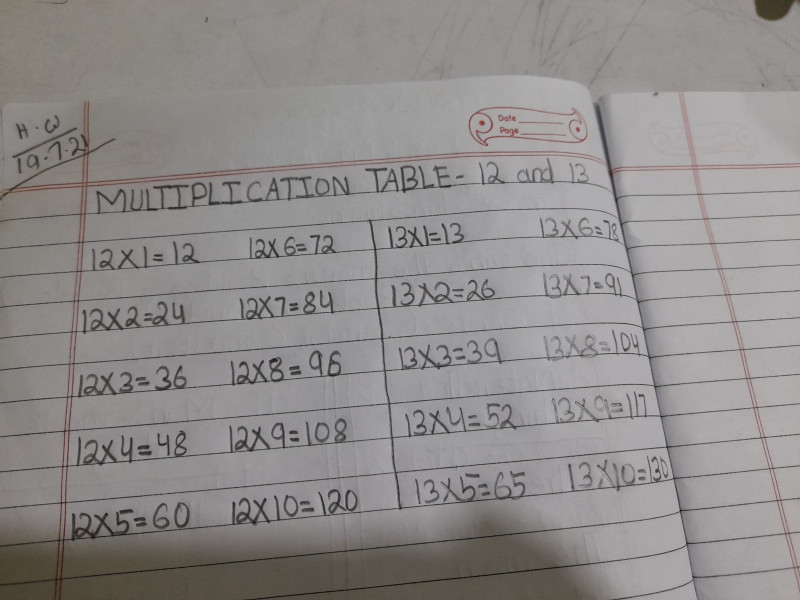 H.W
19.7.21
Date
Page
MULTIPLICATION TABLE- 12 and 13
12X1=12 12X6=72 13X1=13 13X6=78
12X2=24 12X7=84 13X2=26 13X7=91
12X3=36 12X8=96 13X3=39 13X8=104
12X4=48 12X9=108 13X4=52 13X9=117
12X5=60 12X10=120 13X5=65 13X10=130